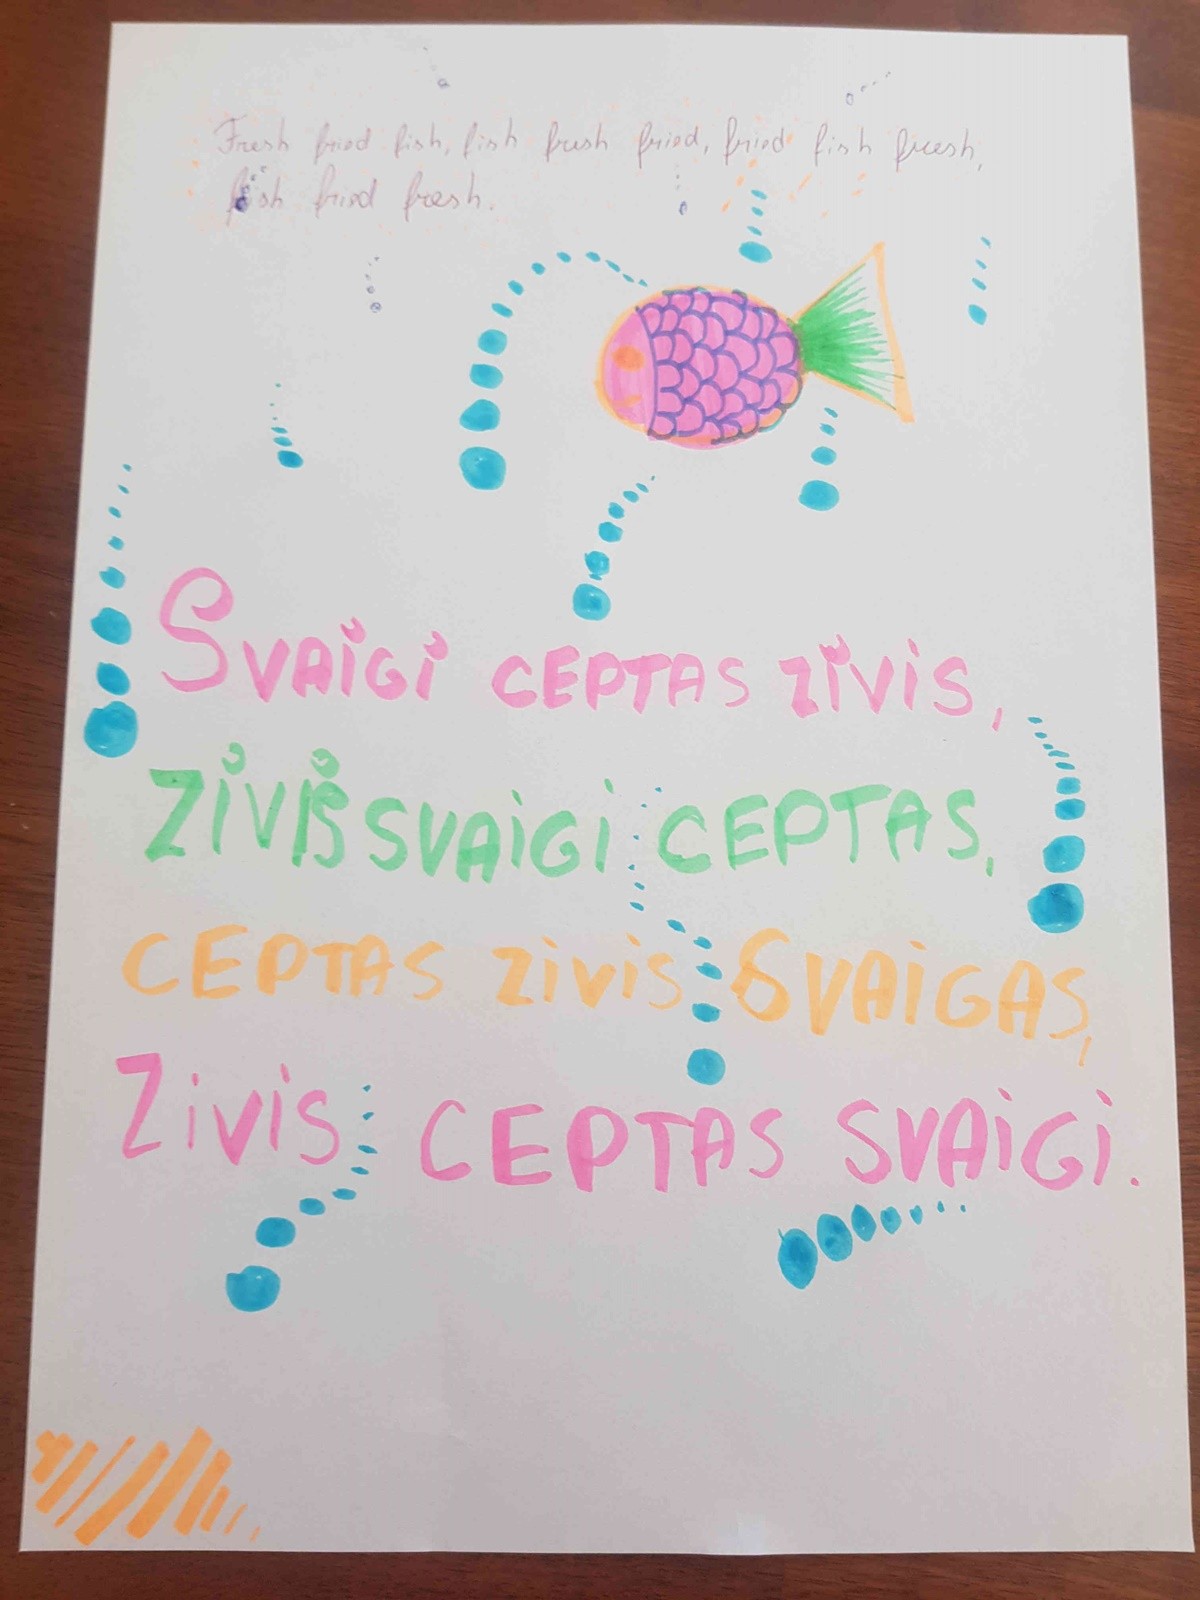 Fresh fried fish, fish fresh fried, fried fish fresh,
fish fried fresh.
SVAIGI CEPTAS ZIVIS,
ZIVIS SVAIGI CEPTAS,
CEPTAS ZIVIS SVAIGAS,
ZIVIS CEPTAS SVAIGI.